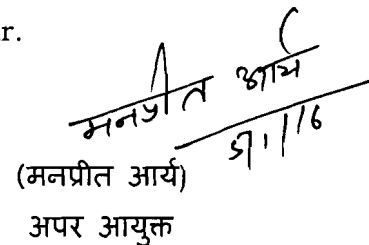 r.
मनप्रीत आर्य
5/1/16
(मनप्रीत आर्य)
अपर आयुक्त